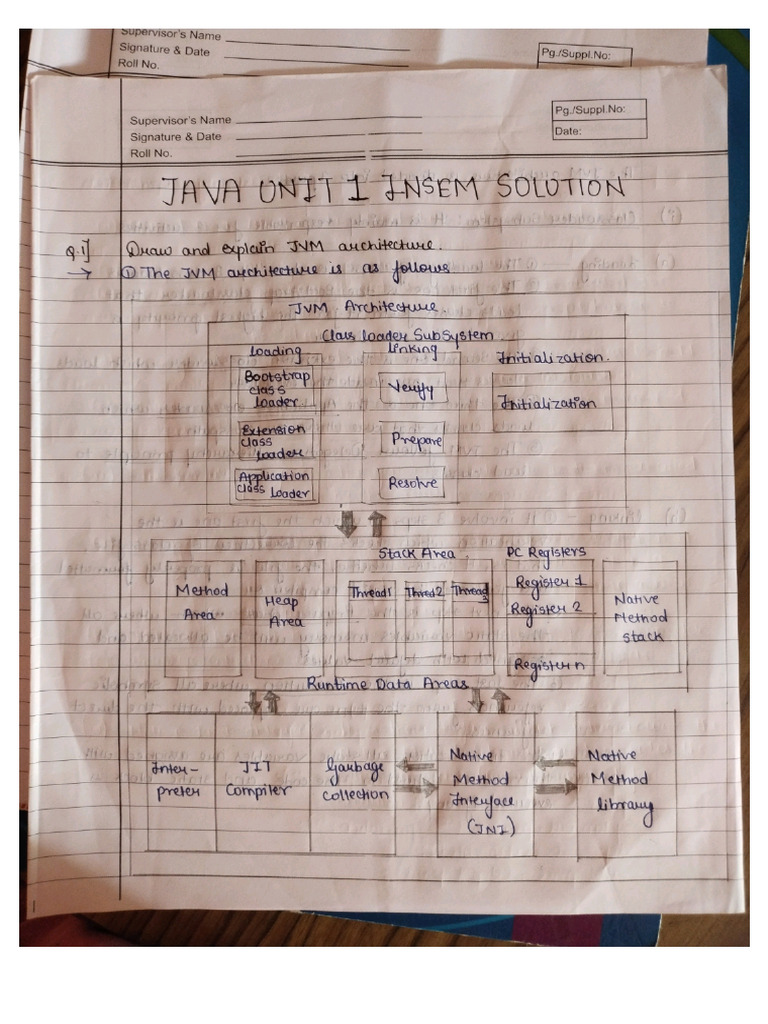 Supervisor's Name
Signature & Date
Roll No.
Pg./Suppl.No:
Supervisor's Name
Signature & Date
Roll No.
Pg./Suppl.No:
Date:
JAVA UNIT 1 INSEM SOLUTION
Q.1] Draw and explain JVM architecture.
→ ① The JVM architecture is as follows
JVM Architecture.
Class loader SubSystem.
loading
linking
Initialization.
Bootstrap
class
loader
Verify
Initialization
Extension
class
loader
Prepare
Application
class loader
Resolve
Stack Area
PC Registers
Method
Area
Heap
Area
Thread1
Thred2
Thread
3
Register 1
Register 2
Register n
Native
Method
stack
Runtime Data Areas
Inter-
preter
JIT
Compiler
Garbage
collection
Native
Method
Interface
(JNI)
Native
Method
library